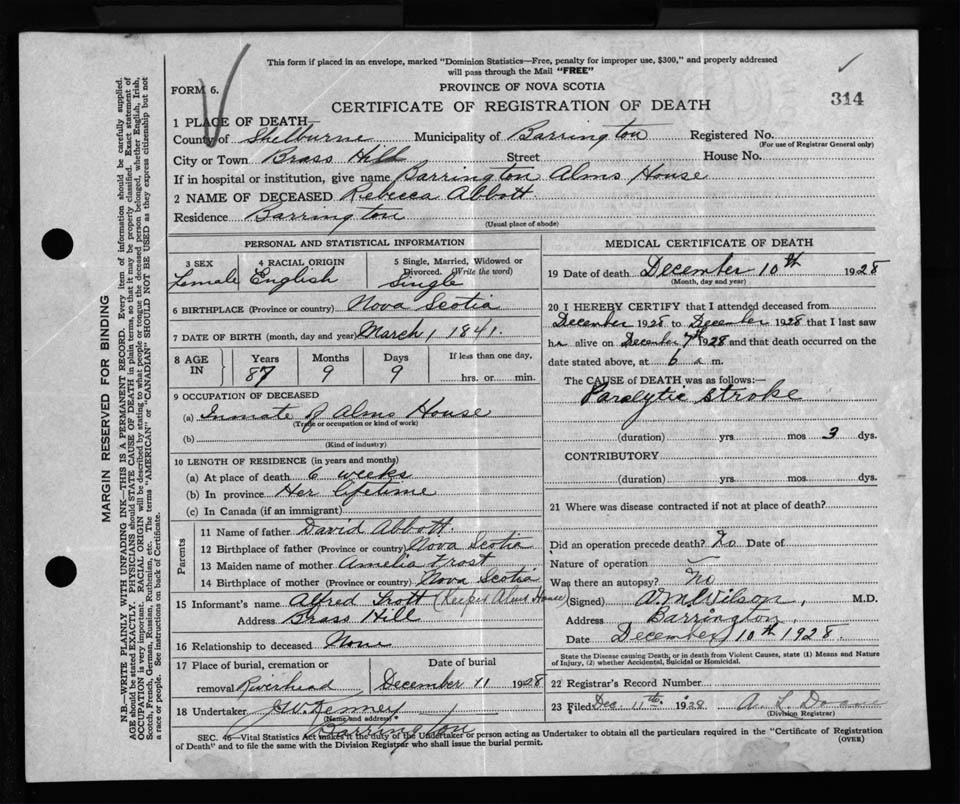 This form if placed in an envelope, marked "Dominion Statistics—Free, penalty for improper use, $300," and properly addressed
will pass through the Mail "FREE"
FORM 6.
PROVINCE OF NOVA SCOTIA
CERTIFICATE OF REGISTRATION OF DEATH
314
1 PLACE OF DEATH—
County of Shelburne Municipality of Barrington Registered No.
(For use of Registrar General only)
City or Town Brass Hill Street House No.
If in hospital or institution, give name Barrington Alms House
2 NAME OF DECEASED Rebecca Abbott
Residence Barrington
(Usual place of abode)
PERSONAL AND STATISTICAL INFORMATION
3 SEX 4 RACIAL ORIGIN 5 Single, Married, Widowed or
Divorced. (Write the word)
Female English Single
6 BIRTHPLACE (Province or country) Nova Scotia
7 DATE OF BIRTH (month, day and year) March 1, 1841.
8 AGE IN Years Months Days If less than one day,
87 9 9 hrs. or min.
9 OCCUPATION OF DECEASED
(a) Inmate of Alms House
(Trade or occupation or kind of work)
(b)
(Kind of industry)
10 LENGTH OF RESIDENCE (in years and months)
(a) At place of death 6 weeks
(b) In province Her lifetime
(c) In Canada (if an immigrant)
Parents
11 Name of father David Abbott
12 Birthplace of father (Province or country) Nova Scotia
13 Maiden name of mother Amelia Frost
14 Birthplace of mother (Province or country) Nova Scotia
15 Informant's name Alfred (Keeper Alms House)
Address Brass Hill
16 Relationship to deceased None
17 Place of burial, cremation or removal Riverhead
Date of burial
December 11 1928
18 Undertaker J.W. Kenney
(Name and address)
Barrington
MEDICAL CERTIFICATE OF DEATH
19 Date of death December 10th 1928
(Month, day and year)
20 I HEREBY CERTIFY that I attended deceased from
December 1928 to December 1928 that I last saw
her alive on December 7th 1928 and that death occurred on the
date stated above, at 6 a m.
The CAUSE OF DEATH was as follows:—
Paralytic Stroke
(duration) yrs. mos 3 dys.
CONTRIBUTORY
(duration) yrs. mos. dys.
21 Where was disease contracted if not at place of death?
Did an operation precede death? No Date of
Nature of operation
Was there an autopsy? No
(Signed) Wilson, M.D.
Address Barrington
Date December 10th 1928.
State the Disease causing Death, or in death from Violent Causes, state (1) Means and Nature
of Injury, (2) whether Accidental, Suicidal or Homicidal.
22 Registrar's Record Number
23 Filed Dec. 11th 1928 A. L. Doane
(Division Registrar)
SEC. 6—Vital Statistics Act makes it the duty of the Undertaker or person acting as Undertaker to obtain all the particulars required in the "Certificate of Registration
of Death" and to file the same with the Division Registrar who shall issue the burial permit.
(OVER)
MARGIN RESERVED FOR BINDING
N.B.—WRITE PLAINLY WITH UNFADING INK—THIS IS A PERMANENT RECORD. Every item of information should be carefully supplied.
AGE should be stated EXACTLY. PHYSICIANS should STATE CAUSE OF DEATH in plain terms, so that it may be properly classified. Exact statement of
OCCUPATION is very important. RACIAL ORIGIN will be described by stating to what people or tongue the deceased person belonged, whether English, Irish,
Scotch, French, German, Russian, Ruthenian, etc. The terms "AMERICAN" or "CANADIAN" SHOULD NOT BE USED as they express citizenship but not
a race or people. See instructions on back of Certificate.